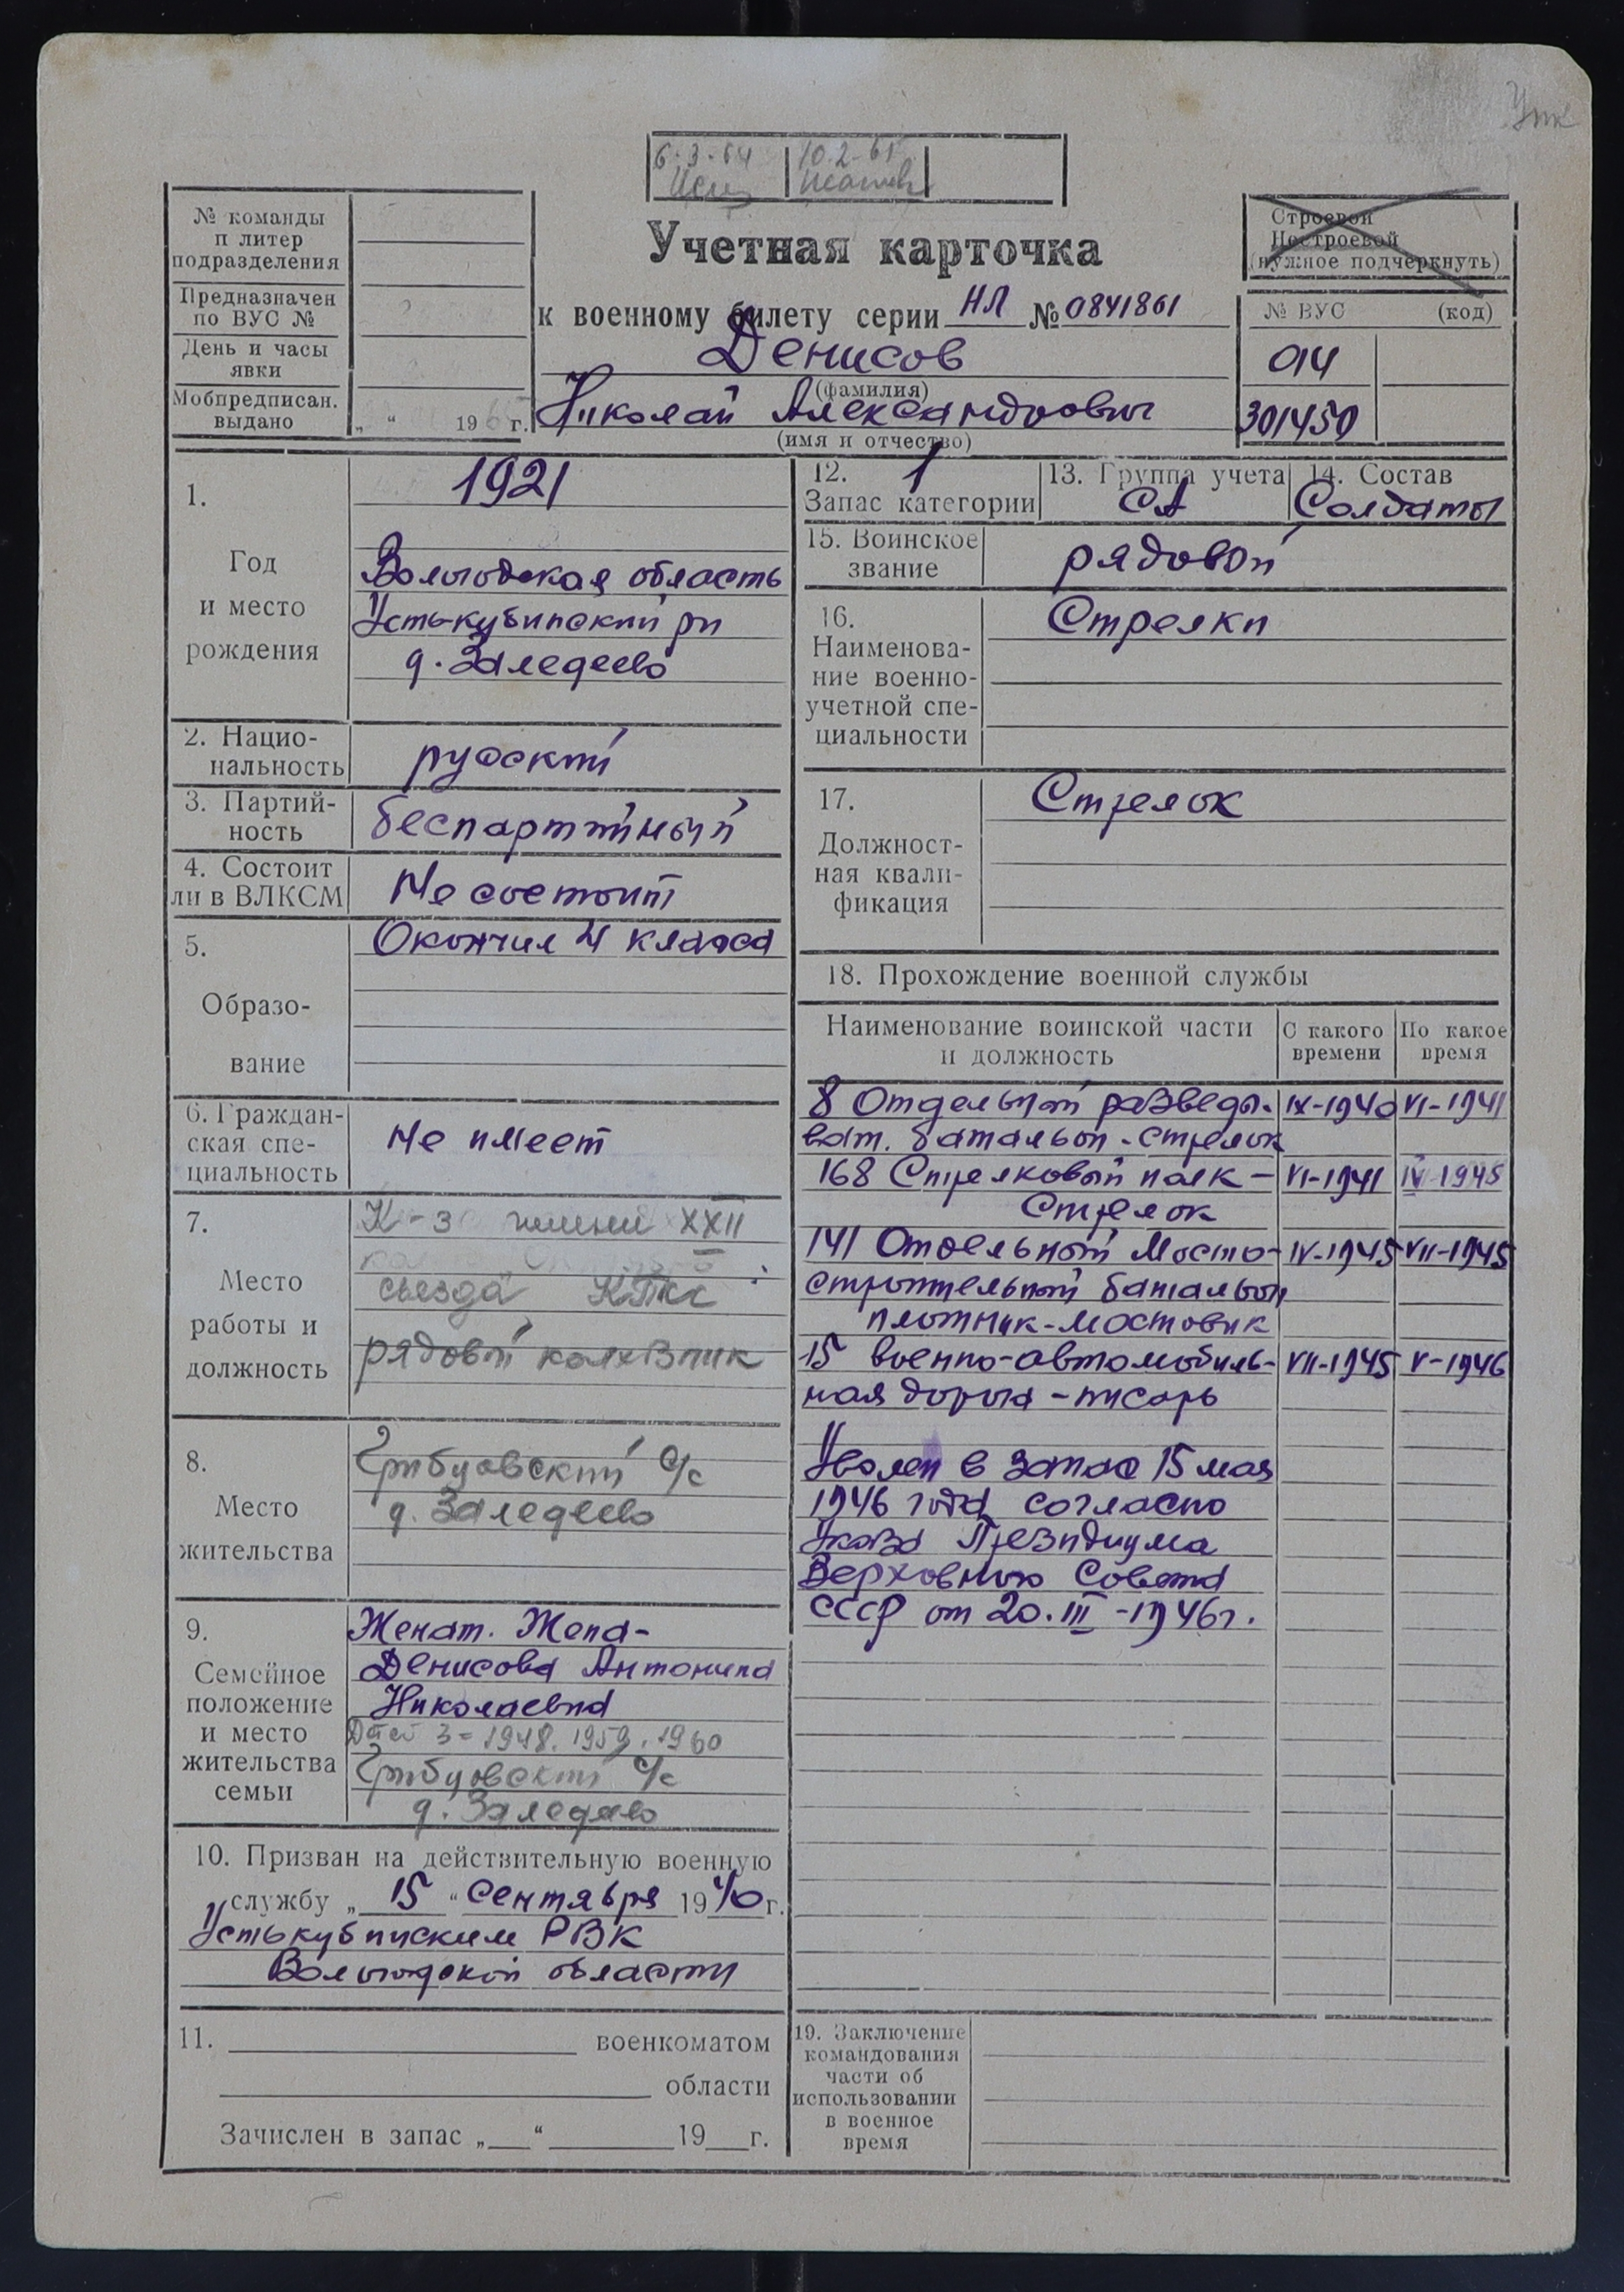 Упк
6.3.64
10.2.65
№ команды
п литер
подразделения
Предназначен
по ВУС №
День и часы
явки
Мобпредписан.
выдано
„ “ 1965 г.
Учетная карточка
к военному билету серии НЛ № 0841861
Денисов
(фамилия)
Николай Александрович
(имя и отчество)
Строевой
Нестроевой
(нужное подчеркнуть)
№ ВУС (код)
014
301450
1.
Год
и место
рождения
1921
Вологодская область
Усть-кубинский рн
д. Заледеево
2. Нацио-
нальность
русский
3. Партий-
ность
беспартийный
4. Состоит
ли в ВЛКСМ
Не состоит
5.
Образо-
вание
Окончил 4 класса
6. Граждан-
ская спе-
циальность
Не имеет
7.
Место
работы и
должность
К-з имени XXII
сьезда КПСС
рядовой колхозник
8.
Место
жительства
Грибцовский с/с
д. Заледеево
9.
Семейное
положение
и место
жительства
семьи
Женат. Жена-
Денисова Антонина
Николаевна
Детей 3 = 1948, 1959, 1960
Грибцовский с/с
д. Заледеево
10. Призван на действительную военную
службу „ 15 “ Сентября 1940 г.
Устькубинским РВК
Вологодской области
11. военкоматом
области
Зачислен в запас „ “ 19 г.
12.
Запас категории
1
13. Группа учета
СА
14. Состав
Солдаты
15. Воинское
звание
рядовой
16.
Наименова-
ние военно-
учетной спе-
циальности
Стрелки
17.
Должност-
ная квали-
фикация
Стрелок
18. Прохождение военной службы
Наименование воинской части
и должность
С какого
времени
По какое
время
8 Отдельный разведы- IX-1940 VI-1941
ват. батальон - стрелок
168 Стрелковый полк - VI-1941 IV-1945
Стрелок
141 Отдельный Мосто- IV-1945 VII-1945
строительный батальон
плотник-мостовик
15 военно-автомобиль- VII-1945 V-1946
ная дорога - писарь
Уволен в запас 15 мая
1946 года согласно
Указа Президиума
Верховного Совета
СССР от 20.III-1946г.
19. Заключение
командования
части об
использовании
в военное
время